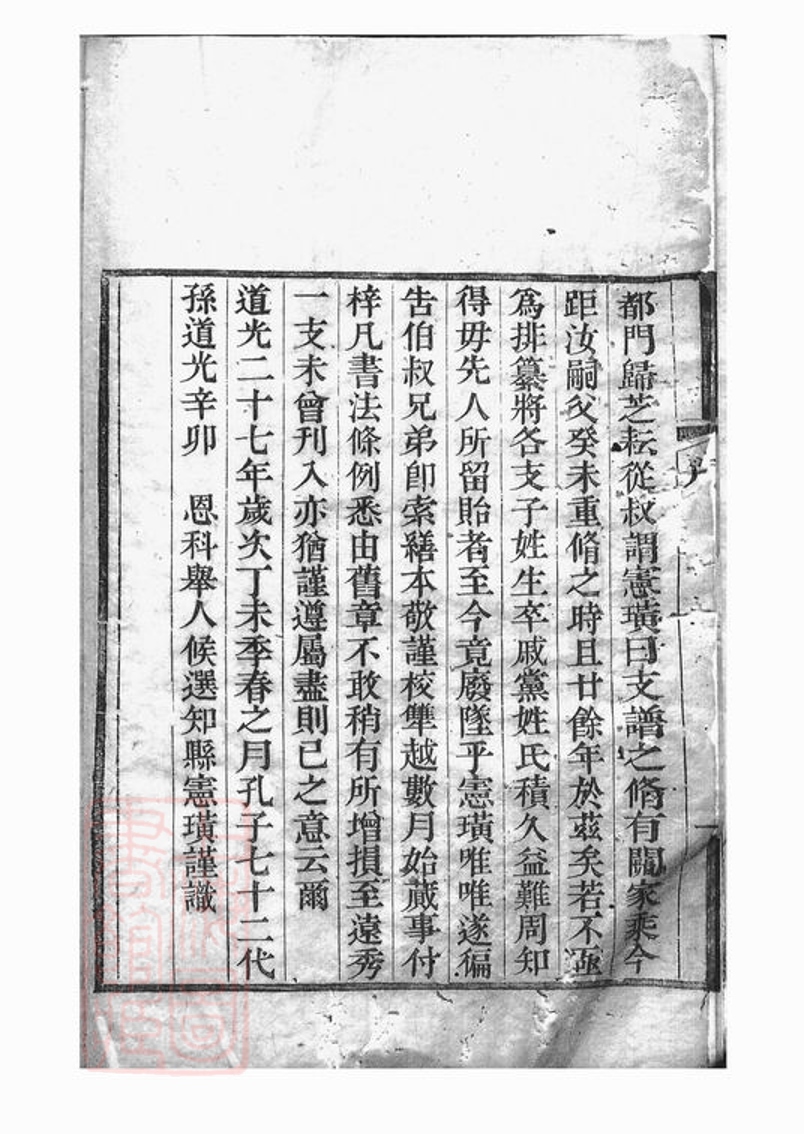 都門歸芝耘從叔謂憲璜曰支譜之脩有關家乘今
距汝嗣父癸未重脩之時且廿餘年於茲矣若不亟
爲排纂將各支子姓生卒戚黨姓氏積久益難周知
得毋先人所留貽者至今竟廢墜乎憲璜唯唯遂徧
告伯叔兄弟卽索繕本敬謹校讐越數月始蕆事付
梓凡書法條例悉由舊章不敢稍有所增損至遠秀
一支未曾刊入亦猶謹遵屬盡則已之意云爾
道光二十七年歲次丁未季春之月孔子七十二代
孫道光辛卯　恩科舉人候選知縣憲璜謹識